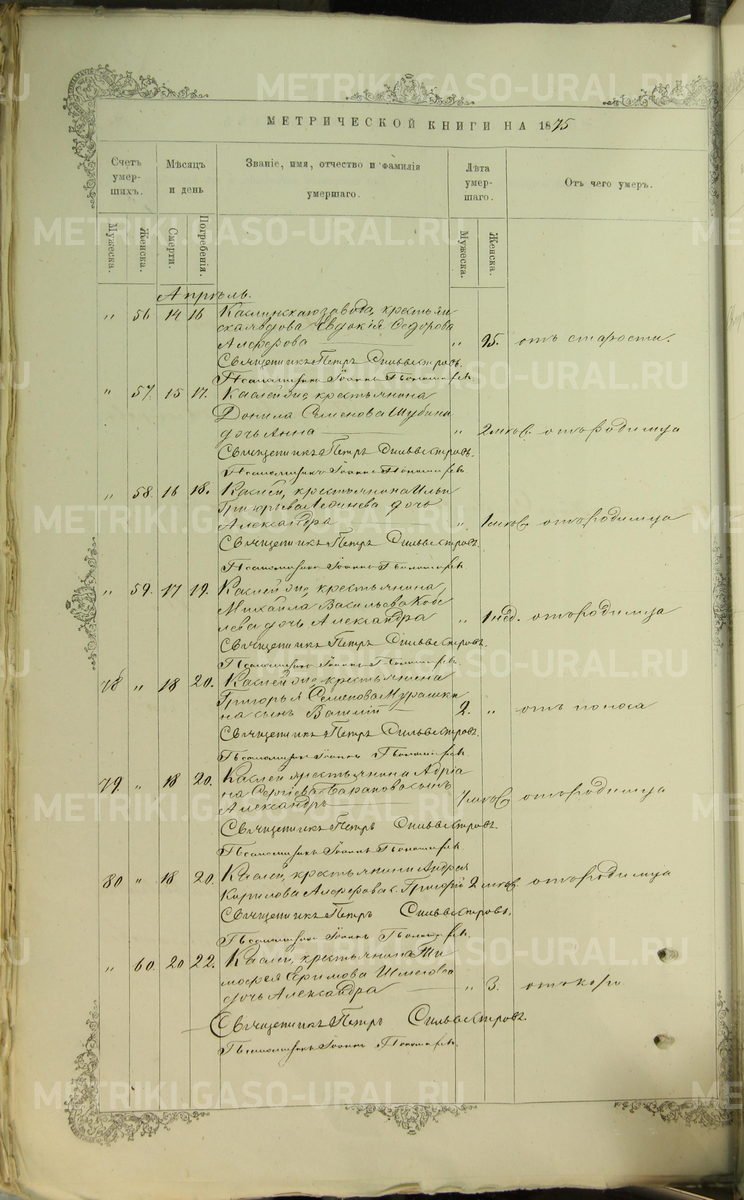 МЕТРИЧЕСКОЙ КНИГИ НА 1875
Счетъ умершихъ.
Мѣсяцъ и день
Званіе, имя, отчество и фамилія умершаго.
Лѣта умершаго.
Отъ чего умеръ.
Мужеска.
Женска.
Смерти.
Погребенія.
Мужеска.
Женска.
Апрѣль.
" 56 14 16 Каслинскаго завода, крестьян
ская вдова Евдокія Ѳедорова
Алферова " 95. отъ старости.
Священникъ Петръ Сильвестровъ.
Псаломщикъ Іоаннъ
" 57. 15 17. крестьянина
Данила Семенова Шубина
дочь Анна " 2 мѣс. отъ родимца
Священникъ Петръ Сильвестровъ.
Псаломщикъ Іоаннъ
" 58. 16 18. Каслей, крестьянина Ильи
Григорьева дочь
Александра " 1 мѣс. отъ родимца
Священникъ Петръ Сильвестровъ.
Псаломщикъ Іоаннъ
" 59. 17 19. крестьянина,
Михаила Васильева
дочь Александра " 1 нед. отъ родимца
Священникъ Петръ Сильвестровъ.
Псаломщикъ Іоаннъ
78 " 18 20. крестьянина
Григорья Семенова Мурашки
на сынъ Василій 2. " отъ поноса
Священникъ Петръ Сильвестровъ.
Псаломщикъ Іоаннъ
79 " 18 20. Каслей крестьянина Адріа
на Сергіева сынъ
Александръ мѣс. отъ родимца
Священникъ Петръ Сильвестровъ.
Псаломщикъ Іоаннъ
80 " 18 20. Каслей, крестьянина Андрея
Кирилова Алферова с. Григорій 2 мѣс. отъ родимца
Священникъ Петръ Сильвестровъ.
Псаломщикъ Іоаннъ
" 60. 20 22. Каслей, крестьянина Ти
мофея Ефимова
дочь Александра " 3. отъ кори
Священникъ Петръ Сильвестровъ.
Псаломщикъ Іоаннъ
METRIKI.GASO-URAL.RU